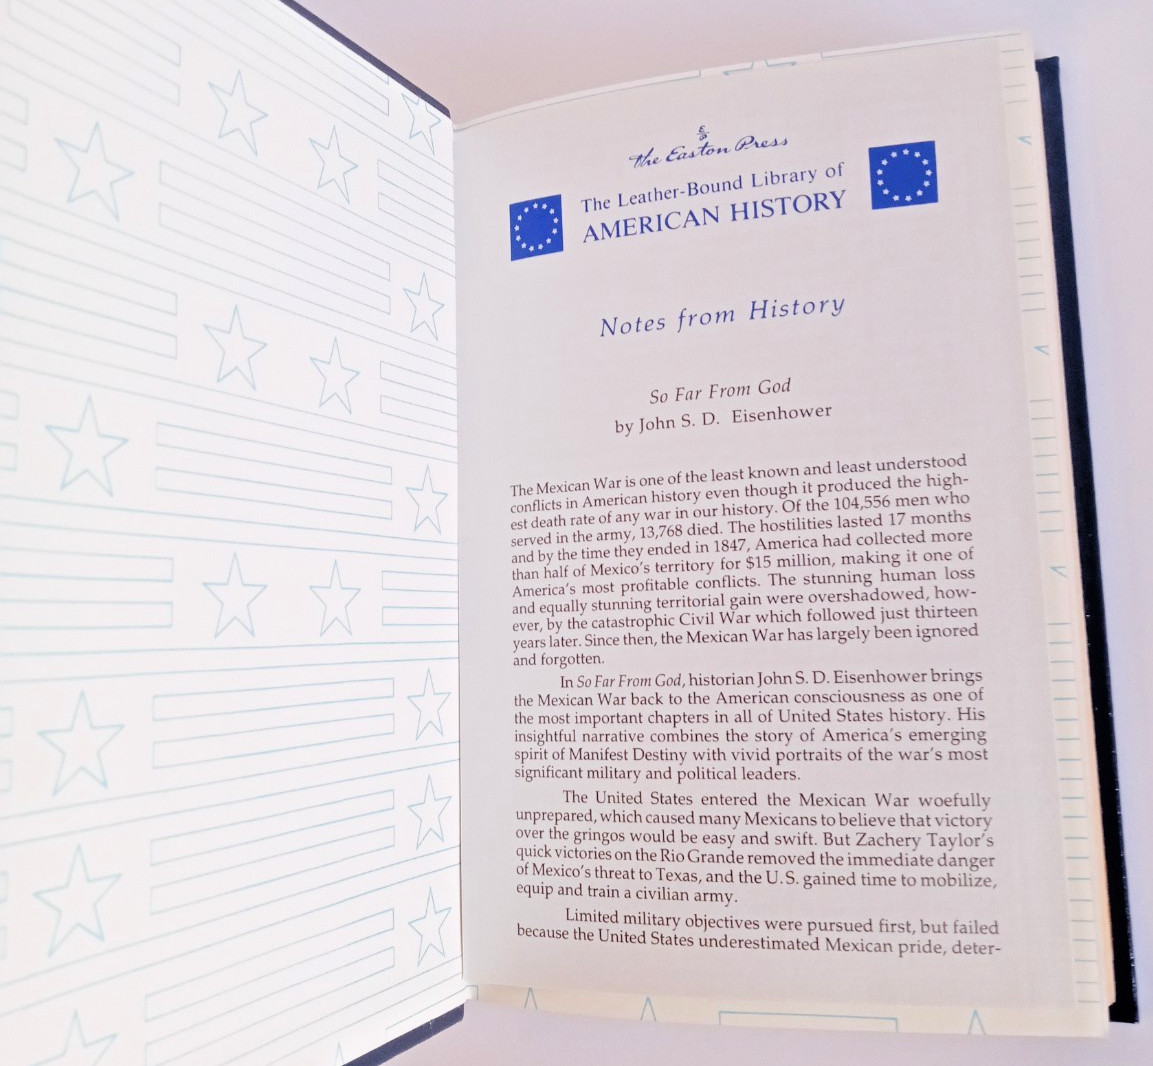 The Easton Press
The Leather-Bound Library of
AMERICAN HISTORY
Notes from History
So Far From God
by John S. D. Eisenhower
The Mexican War is one of the least known and least understood
conflicts in American history even though it produced the high-
est death rate of any war in our history. Of the 104,556 men who
served in the army, 13,768 died. The hostilities lasted 17 months
and by the time they ended in 1847, America had collected more
than half of Mexico's territory for $15 million, making it one of
America's most profitable conflicts. The stunning human loss
and equally stunning territorial gain were overshadowed, how-
ever, by the catastrophic Civil War which followed just thirteen
years later. Since then, the Mexican War has largely been ignored
and forgotten.
In So Far From God, historian John S. D. Eisenhower brings
the Mexican War back to the American consciousness as one of
the most important chapters in all of United States history. His
insightful narrative combines the story of America's emerging
spirit of Manifest Destiny with vivid portraits of the war's most
significant military and political leaders.
The United States entered the Mexican War woefully
unprepared, which caused many Mexicans to believe that victory
over the gringos would be easy and swift. But Zachery Taylor's
quick victories on the Rio Grande removed the immediate danger
of Mexico's threat to Texas, and the U.S. gained time to mobilize,
equip and train a civilian army.
Limited military objectives were pursued first, but failed
because the United States underestimated Mexican pride, deter-